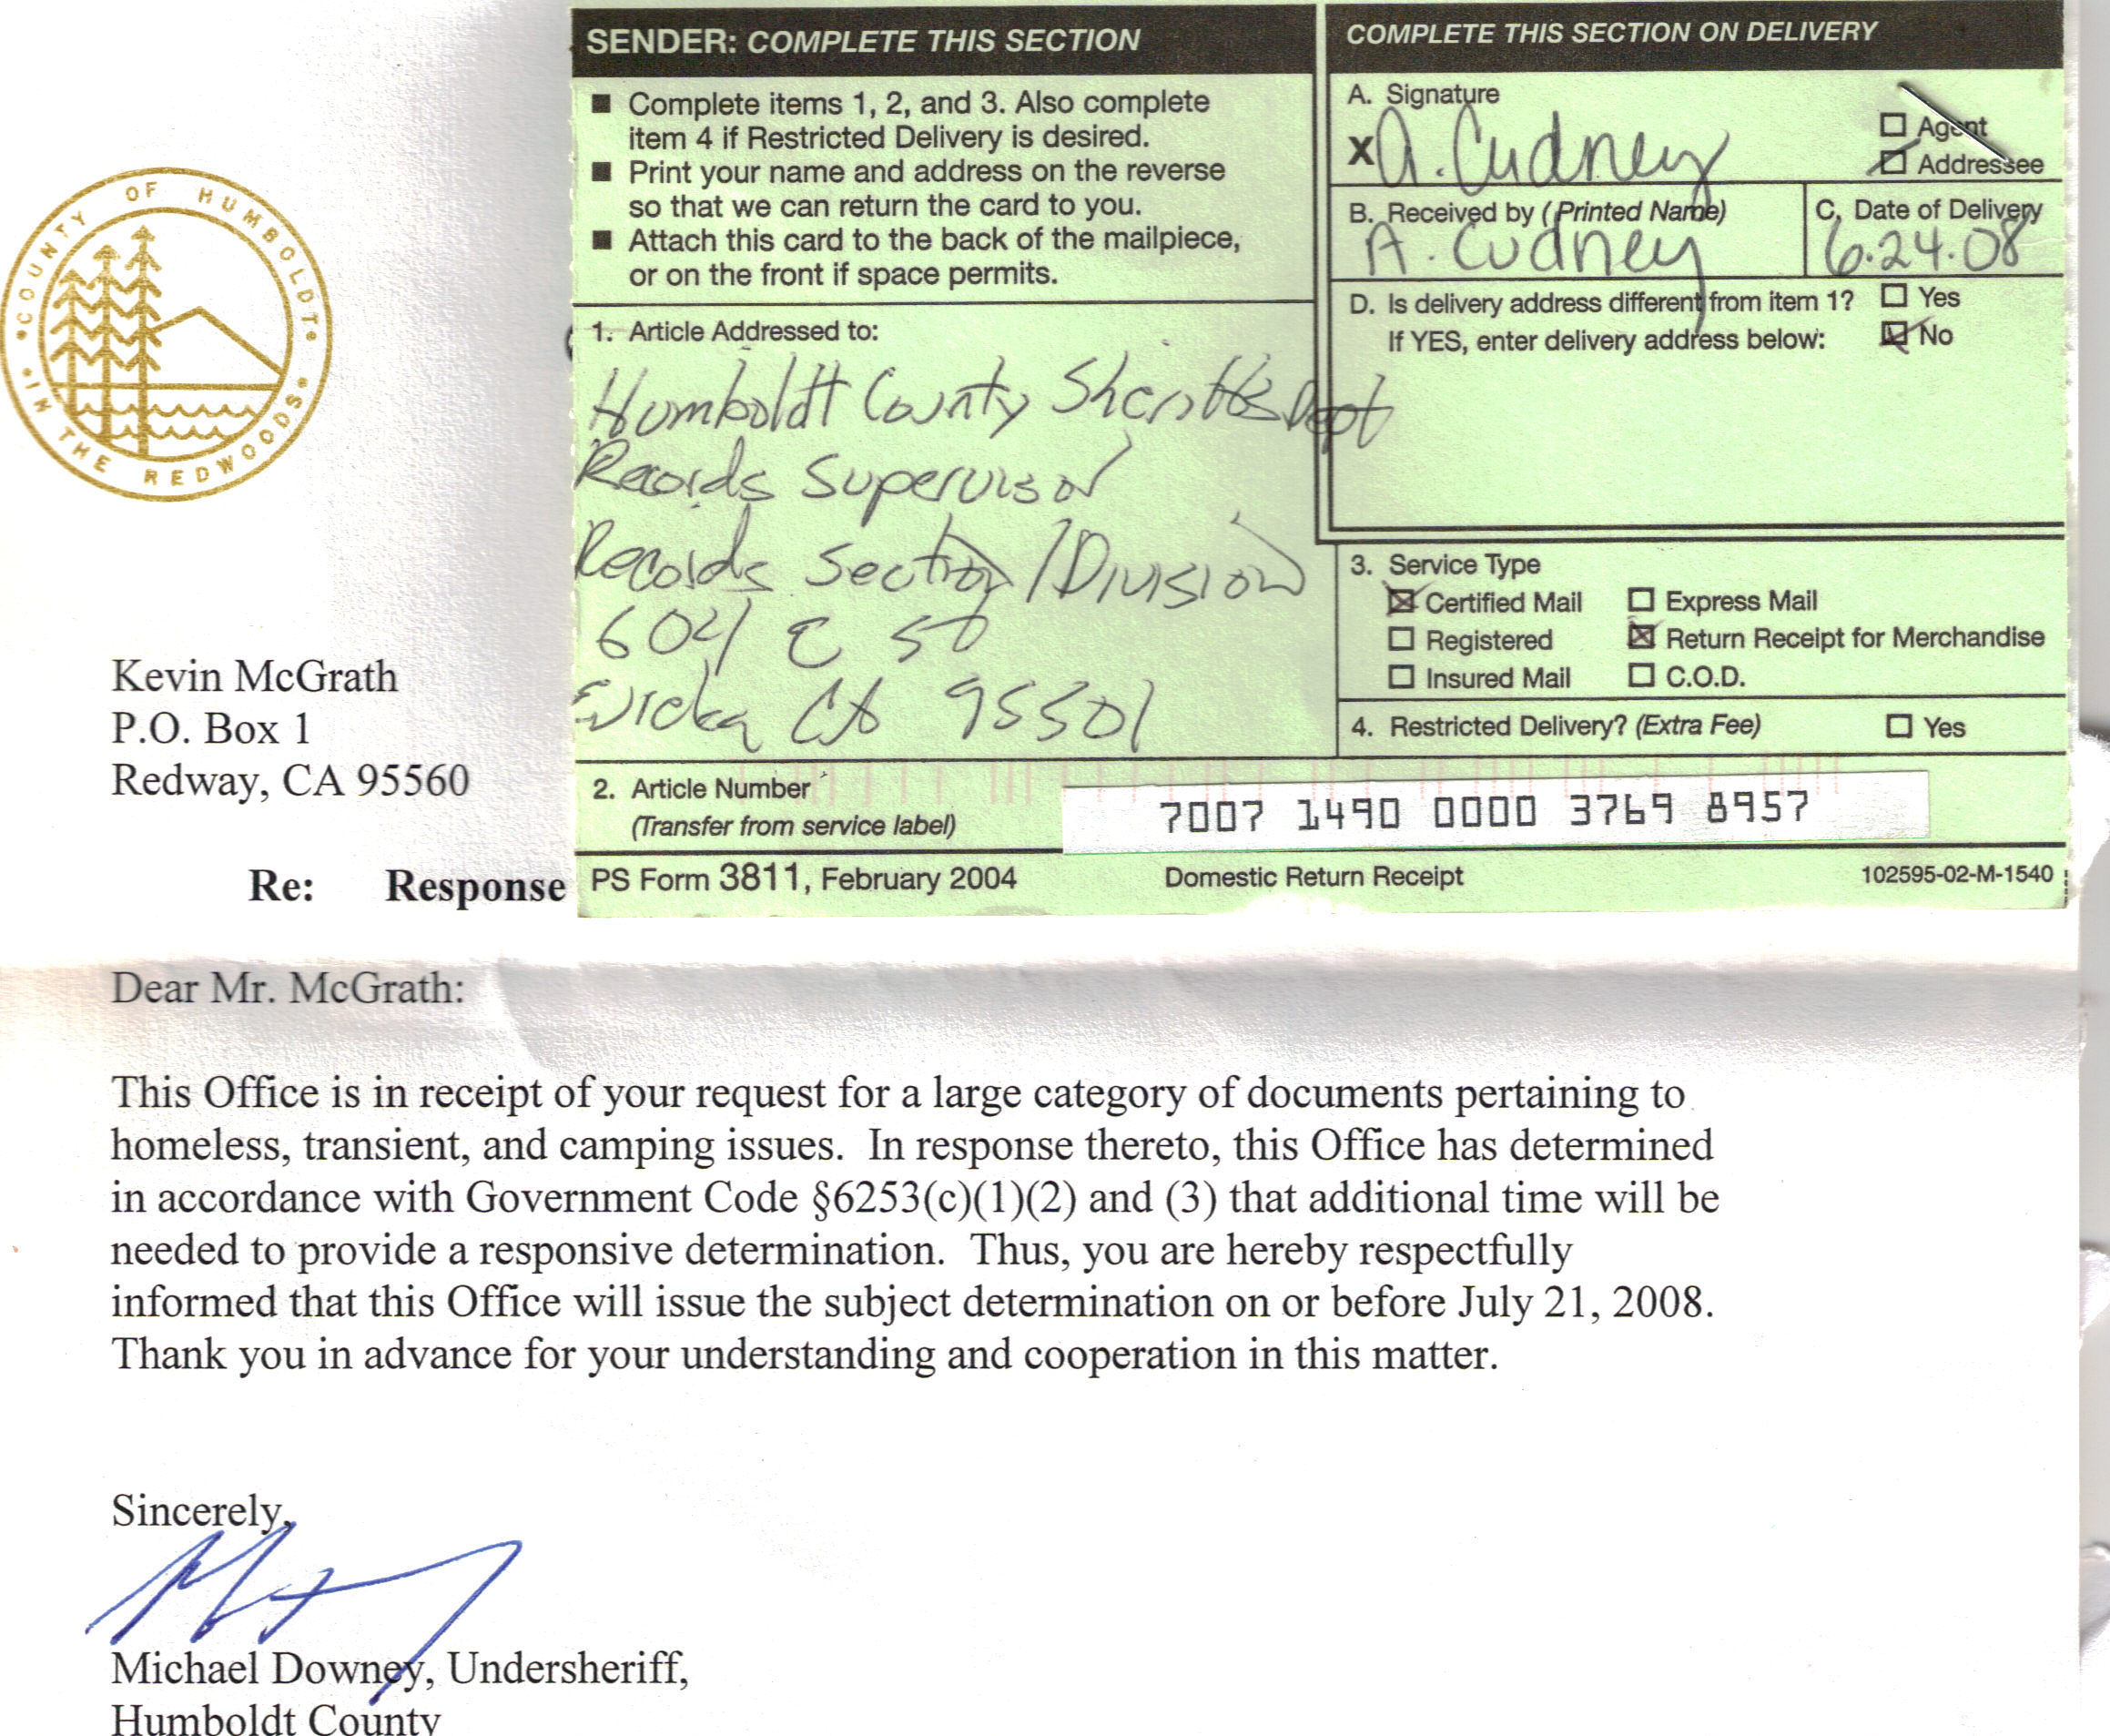 COUNTY OF HUMBOLDT
IN THE REDWOODS
SENDER: COMPLETE THIS SECTION
■ Complete items 1, 2, and 3. Also complete
item 4 if Restricted Delivery is desired.
■ Print your name and address on the reverse
so that we can return the card to you.
■ Attach this card to the back of the mailpiece,
or on the front if space permits.
1. Article Addressed to:
Humboldt County Sheriff's Dept
Records Supervisor
Records Section/Division
604 C St
Eureka CA 95501
2. Article Number
(Transfer from service label)
7007 1490 0000 3769 8957
COMPLETE THIS SECTION ON DELIVERY
A. Signature
X A. Cudney
Agent
Addressee
B. Received by (Printed Name)
A. Cudney
C. Date of Delivery
6.24.08
D. Is delivery address different from item 1? Yes
If YES, enter delivery address below: No
3. Service Type
Certified Mail Express Mail
Registered Return Receipt for Merchandise
Insured Mail C.O.D.
4. Restricted Delivery? (Extra Fee) Yes
PS Form 3811, February 2004 Domestic Return Receipt 102595-02-M-1540
Kevin McGrath
P.O. Box 1
Redway, CA 95560
Re: Response
Dear Mr. McGrath:
This Office is in receipt of your request for a large category of documents pertaining to
homeless, transient, and camping issues. In response thereto, this Office has determined
in accordance with Government Code §6253(c)(1)(2) and (3) that additional time will be
needed to provide a responsive determination. Thus, you are hereby respectfully
informed that this Office will issue the subject determination on or before July 21, 2008.
Thank you in advance for your understanding and cooperation in this matter.
Sincerely,
Michael Downey, Undersheriff,
Humboldt County